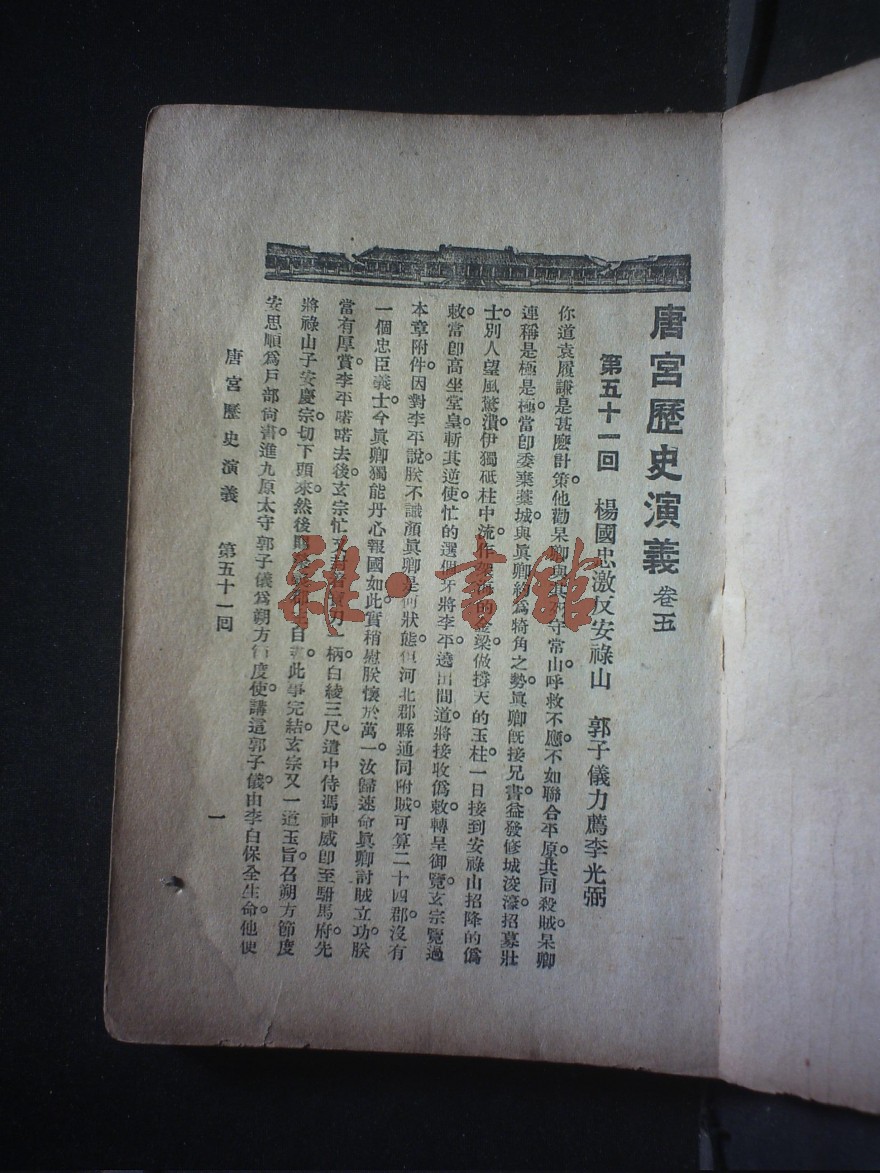 唐宮歷史演義 卷五
第五十一回 楊國忠激反安祿山 郭子儀力薦李光弼
你道袁履謙是甚麼計策他勸杲卿與其死守常山呼救不應不如聯合平原共同殺賊杲卿
連稱是極是極當卽委棄藁城與眞卿約爲犄角之勢眞卿旣接兄書益發修城浚濠招募壯
士別人望風驚潰伊獨砥柱中流作架海的金梁做撐天的玉柱一日接到安祿山招降的僞
敕當卽高坐堂皇斬其逆使忙的選個牙將李平遶出間道將接收僞敕轉呈御覽玄宗覽過
本章附件因對李平說朕不識顏眞卿是何狀態但河北郡縣通同附賊可算二十四郡沒有
一個忠臣義士今眞卿獨能丹心報國如此實稍慰朕懷於萬一汝歸速命眞卿討賊立功朕
當有厚賞李平喏喏去後玄宗忙又封着刀一柄白綾三尺遣中侍馮神威卽至駙馬府先
將祿山子安慶宗切下頭來然後自盡此事完結玄宗又一道玉旨召朔方節度
安思順爲戶部尙書進九原太守郭子儀爲朔方節度使講這郭子儀由李白保全生命他便
唐宮歷史演義 第五十一回
一
雜·書館